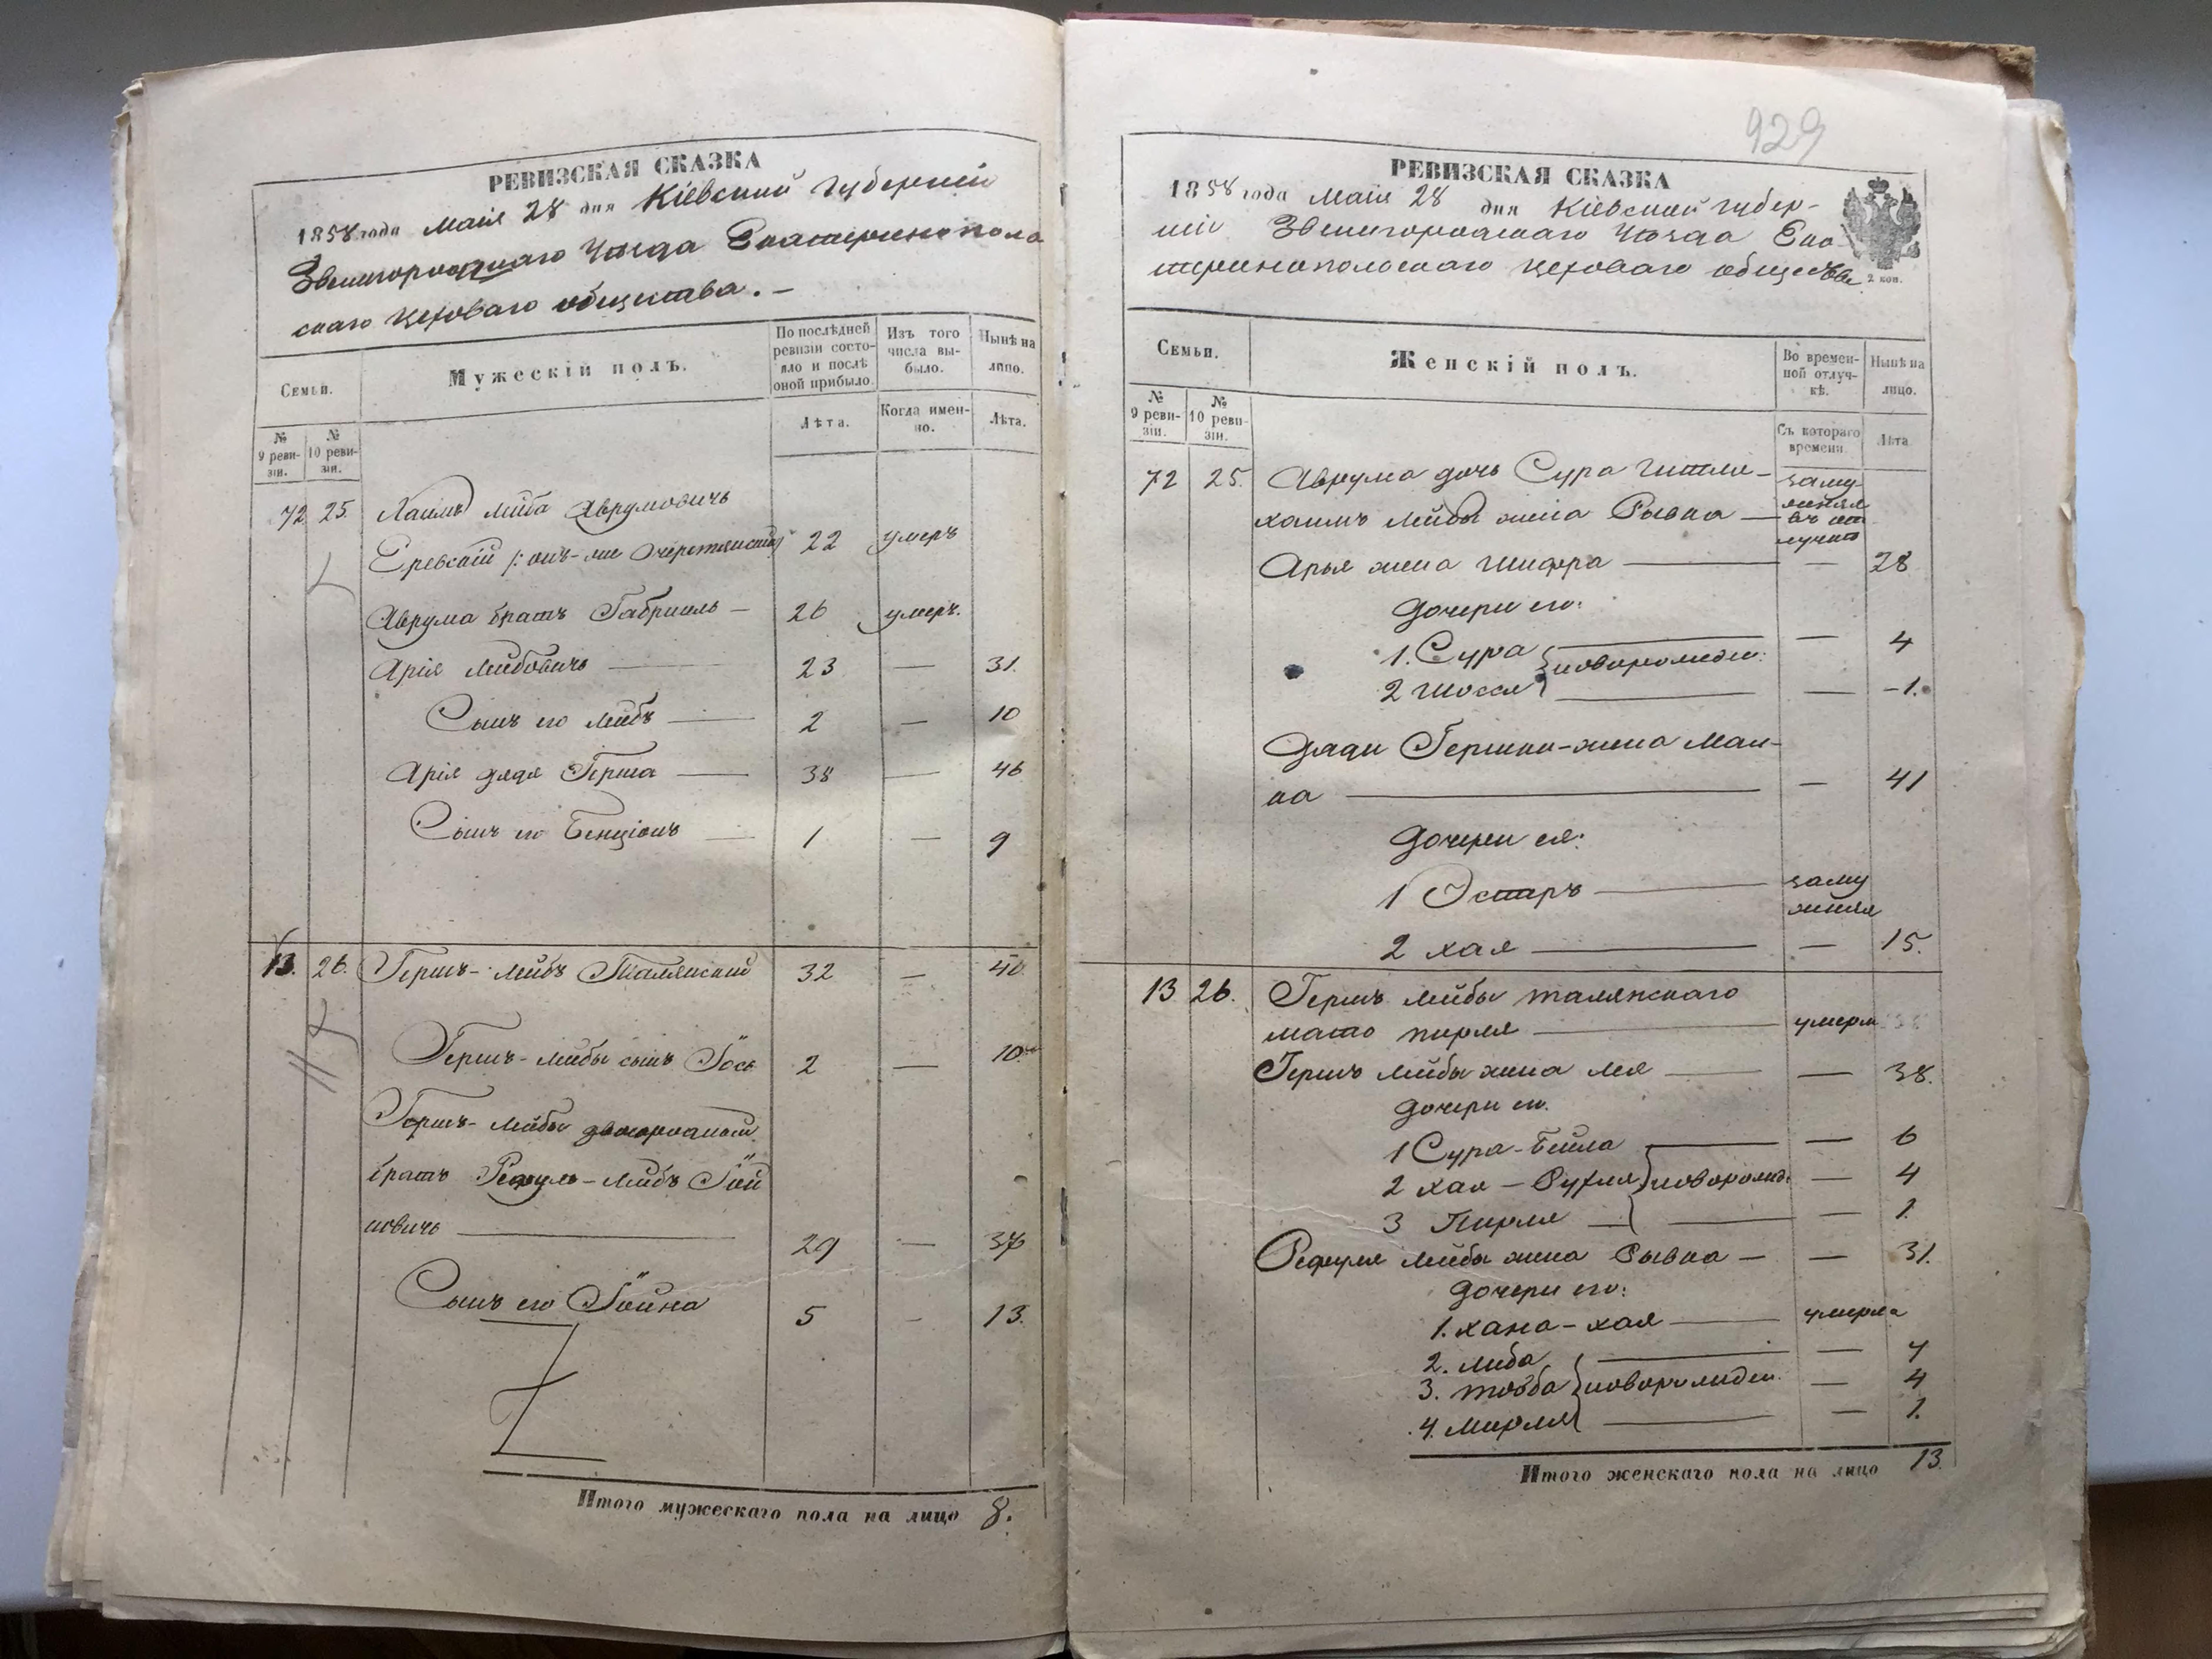 РЕВИЗСКАЯ СКАЗКА
1858 года Маія 28 дня Кіевской губерніи
Звенигородскаго Уѣзда Екатеринопол
скаго Цеховаго общества. –
Семьи.
Мужескій полъ.
По послѣдней ревизіи состояло и послѣ оной прибыло.
Изъ того числа выбыло.
Нынѣ на лицо.
№ 9 ревизіи.
№ 10 ревизіи.
Лѣта.
Когда именно.
Лѣта.
72 25. Хаимъ Лейба Аврумовичъ
Еревскій /: онъ-же 22 умеръ
Аврума братъ Габріиль – 26 умеръ.
Арія Лейбовичъ — 23 — 31.
Сынъ его Лейбъ — 2 — 10
Арія дядя Герша — 38 — 46
Сынъ его Бенціонъ — 1 — 9
13. 26. Гершъ-Лейбъ Талянский 32 — 40.
Гершъ-Лейбы сынъ Іось 2 — 10.
Гершъ-Лейбы двоюродный
братъ Рефуль-Лейбъ Іой
новичъ — 29 — 37
Сынъ его Іойна 5 - 13.
Итого мужескаго пола на лицо 8.
929
РЕВИЗСКАЯ СКАЗКА
1858 года Маія 28 дня Кіевской губер-
ніи Звенигородскаго Уѣзда Ека-
теринопольскаго Цеховаго общества
2 коп.
Семьи.
Женскій полъ.
Во временной отлучкѣ.
Нынѣ на лицо.
№ 9 ревизіи.
№ 10 ревизіи.
Съ котораго времени.
Лѣта
72 25. Аврума дочь Сура Гитля – заму
Хаимъ Лейбы жена Рывка —
Арья жена Шифра — — 28
Дочери его:
1. Сура } новорожден: — 4
2 Шосся — -1.
Дяди Гершки-жена Мал-
ка — — 41
Дочери ея:
1 Эстеръ — заму
жняя
2 Хая — — 15.
13 26. Гершъ Лейбы Талянскаго
мать Пирля — умерла
Гершъ Лейбы жена Лея — — 38.
Дочери его.
1 Сура-Бейла — — 6
2 Хая – Рухля } новорожд: — 4
3 Пирля — — 1.
Рефуля Лейбы жена Рывка – — 31.
Дочери его:
1. Хана-Хая — умерла
2. Либа — — 7
3. Товба } новорожден. — 4
4. Мирля — — 1.
Итого женскаго пола на лицо 13.